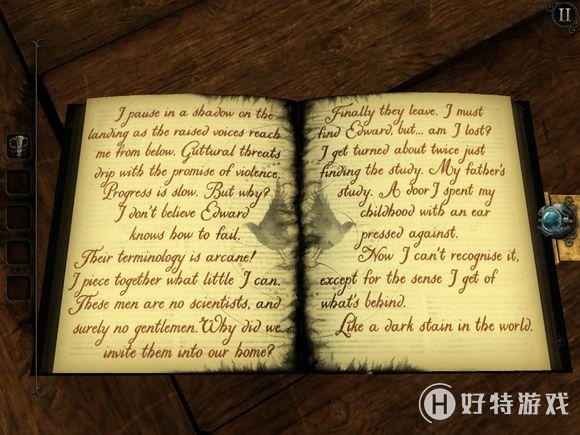 I pause in a shadow on the
landing as the raised voices reach
me from below. Guttural threats
drip with the promise of violence.
Progress is slow. But why?
I don't believe Edward
knows how to fail.
Their terminology is arcane!
I piece together what little I can.
These men are no scientists, and
surely no gentlemen. Why did we
invite them into our home?
Finally they leave. I must
find Edward, but... am I lost?
I get turned about twice just
finding the study. My father's
study. A door I spent my
childhood with an ear
pressed against.
Now I can't recognise it,
except for the sense I get of
what's behind.
Like a dark stain in the world.
II
H 好特游戏